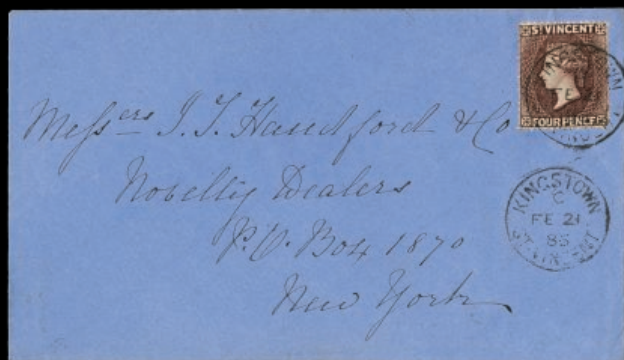 ST VINCENT
FOUR PENCE
KINGSTOWN
Messers J. J. Handford & Co
Novelty Dealers
P.O. Box 1870
New York
KINGSTOWN
C
FE 21
85
ST. VINCENT